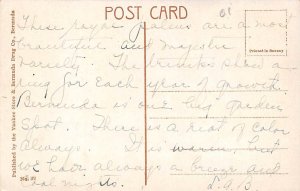 POST CARD
61
These royal palms are a most
beautiful and majestic
variety. The trunks show a
ring for each year of growth
Bermuda is one big garden
Spot. There is a riot of color
always. It is warm, but
we have always a breeze and
cool nights. L.S.B
Published by the Yankee Store & Bermuda Drug Co., Bermuda.
Printed in Saxony